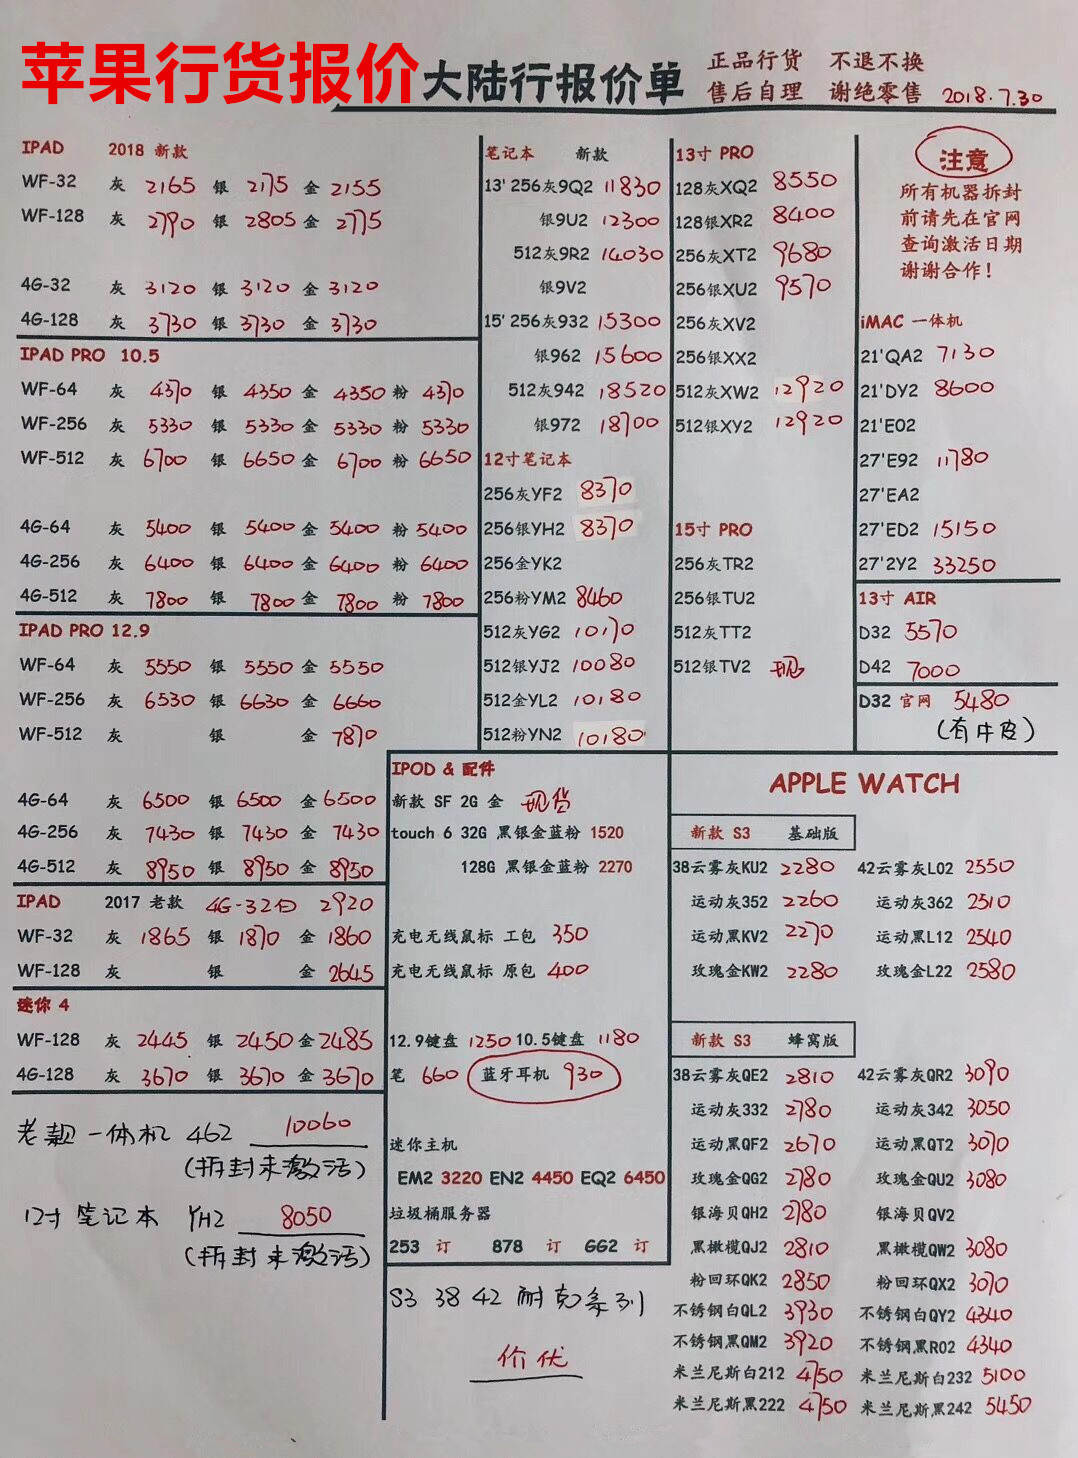 苹果行货报价 大陆行报价单
正品行货 不退不换
售后自理 谢绝零售 2018.7.30
IPAD 2018 新款
WF-32 灰 2165 银 2175 金 2155
WF-128 灰 2790 银 2805 金 2775
4G-32 灰 3120 银 3120 金 3120
4G-128 灰 3730 银 3730 金 3730
IPAD PRO 10.5
WF-64 灰 4370 银 4350 金 4350 粉 4370
WF-256 灰 5330 银 5330 金 5330 粉 5330
WF-512 灰 6700 银 6650 金 6700 粉 6650
4G-64 灰 5400 银 5400 金 5400 粉 5400
4G-256 灰 6400 银 6400 金 6400 粉 6400
4G-512 灰 7800 银 7800 金 7800 粉 7800
IPAD PRO 12.9
WF-64 灰 5550 银 5550 金 5550
WF-256 灰 6530 银 6630 金 6660
WF-512 灰 银 金 7870
4G-64 灰 6500 银 6500 金 6500
4G-256 灰 7430 银 7430 金 7430
4G-512 灰 8950 银 8950 金 8950
IPAD 2017 老款 4G-32 2920
WF-32 灰 1865 银 1870 金 1860
WF-128 灰 银 金 2645
迷你 4
WF-128 灰 2445 银 2450 金 2485
4G-128 灰 3670 银 3670 金 3670
老款一体机 462 10060
(拆封未激活)
12寸 笔记本 YH2 8050
(拆封未激活)
笔记本 新款
13' 256灰9Q2 11830
银9U2 12300
512灰9R2 14030
银9V2
15' 256灰932 15300
银962 15600
512灰942 18520
银972 18700
12寸笔记本
256灰YF2 8370
256银YH2 8370
256金YK2
256粉YM2 8460
512灰YG2 10170
512银YJ2 10080
512金YL2 10180
512粉YN2 10180
13寸 PRO
128灰XQ2 8550
128银XR2 8400
256灰XT2 9680
256银XU2 9570
256灰XV2
256银XX2
512灰XW2 12920
512银XY2 12920
15寸 PRO
256灰TR2
256银TU2
512灰TT2
512银TV2 现
注意
所有机器拆封
前请先在官网
查询激活日期
谢谢合作！
iMAC 一体机
21'QA2 7130
21'DY2 8600
21'E02
27'E92 11780
27'EA2
27'ED2 15150
27'2Y2 33250
13寸 AIR
D32 5570
D42 7000
D32 官网 5480
(有牛皮)
IPOD & 配件
新款 SF 2G 金 现货
touch 6 32G 黑银金蓝粉 1520
128G 黑银金蓝粉 2270
充电无线鼠标 工包 350
充电无线鼠标 原包 400
12.9键盘 1250 10.5键盘 1180
笔 660 蓝牙耳机 930
迷你主机
EM2 3220 EN2 4450 EQ2 6450
垃圾桶服务器
253 订 878 订 GG2 订
S3 38 42 耐克系列
价优
APPLE WATCH
新款 S3 基础版
38云雾灰KU2 2280 42云雾灰L02 2550
运动灰352 2260 运动灰362 2510
运动黑KV2 2270 运动黑L12 2540
玫瑰金KW2 2280 玫瑰金L22 2580
新款 S3 蜂窝版
38云雾灰QE2 2810 42云雾灰QR2 3090
运动灰332 2780 运动灰342 3050
运动黑QF2 2670 运动黑QT2 3070
玫瑰金QG2 2780 玫瑰金QU2 3080
银海贝QH2 2780 银海贝QV2
黑橄榄QJ2 2810 黑橄榄QW2 3080
粉回环QK2 2850 粉回环QX2 3070
不锈钢白QL2 3930 不锈钢白QY2 4340
不锈钢黑QM2 3920 不锈钢黑R02 4340
米兰尼斯白212 4750 米兰尼斯白232 5100
米兰尼斯黑222 4750 米兰尼斯黑242 5450